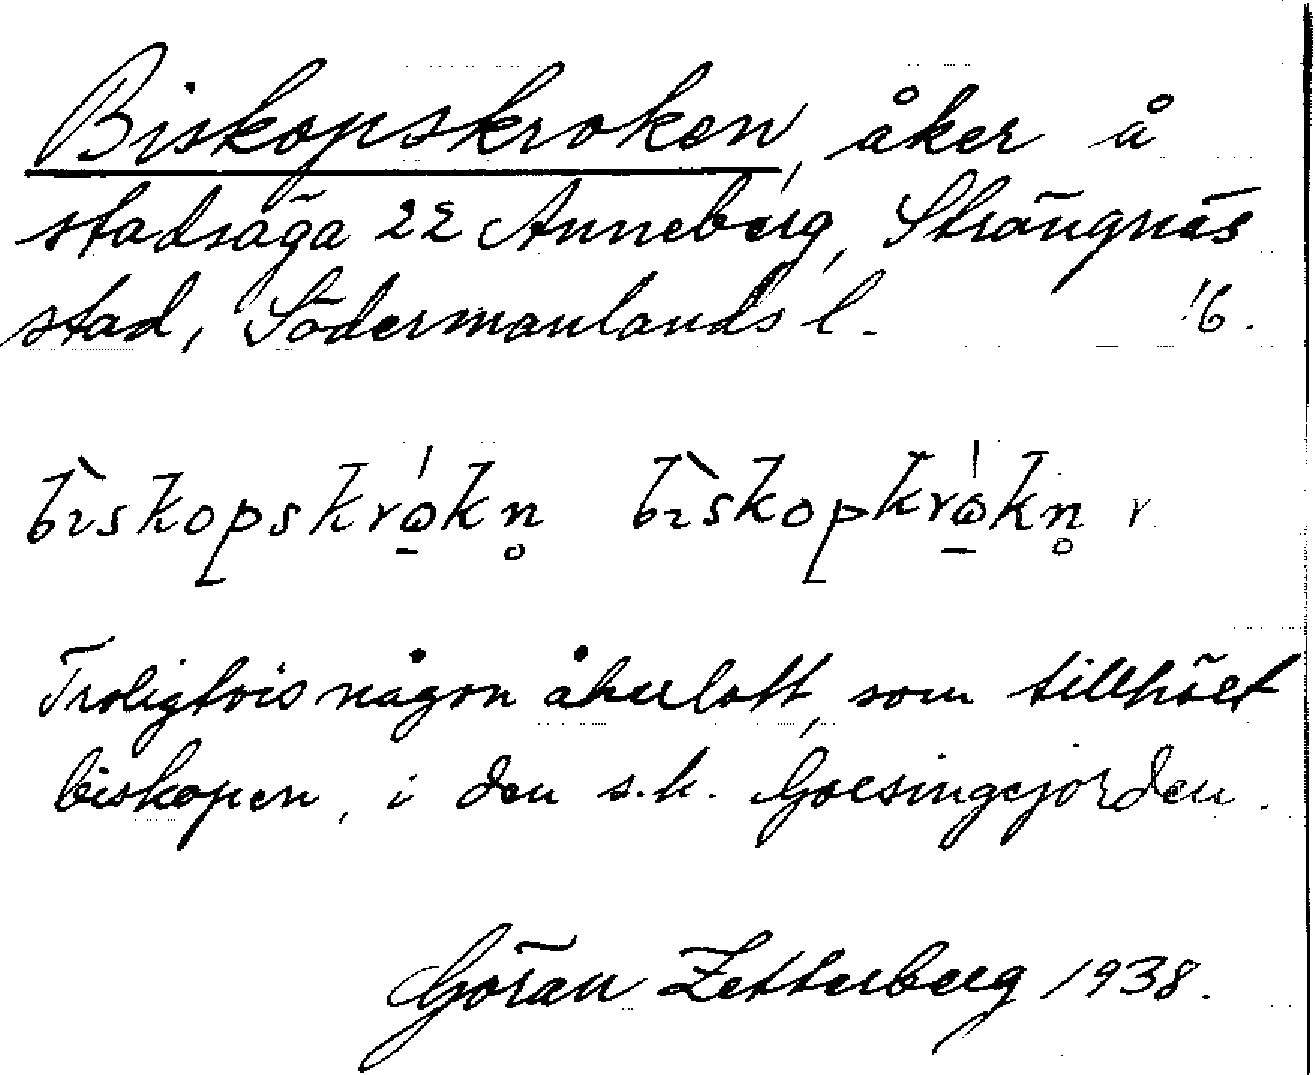 Biskopskroken, åker å
stadsäga 22 Anneberg, Strängnäs
stad, Södermanlands l. 16.
biskopskrokn biskopkrokn r
Troligtvis någon åkerlott, som tillhört
biskopen, i den s.k. Gorsingejorden.
Göran Zetterberg 1938.